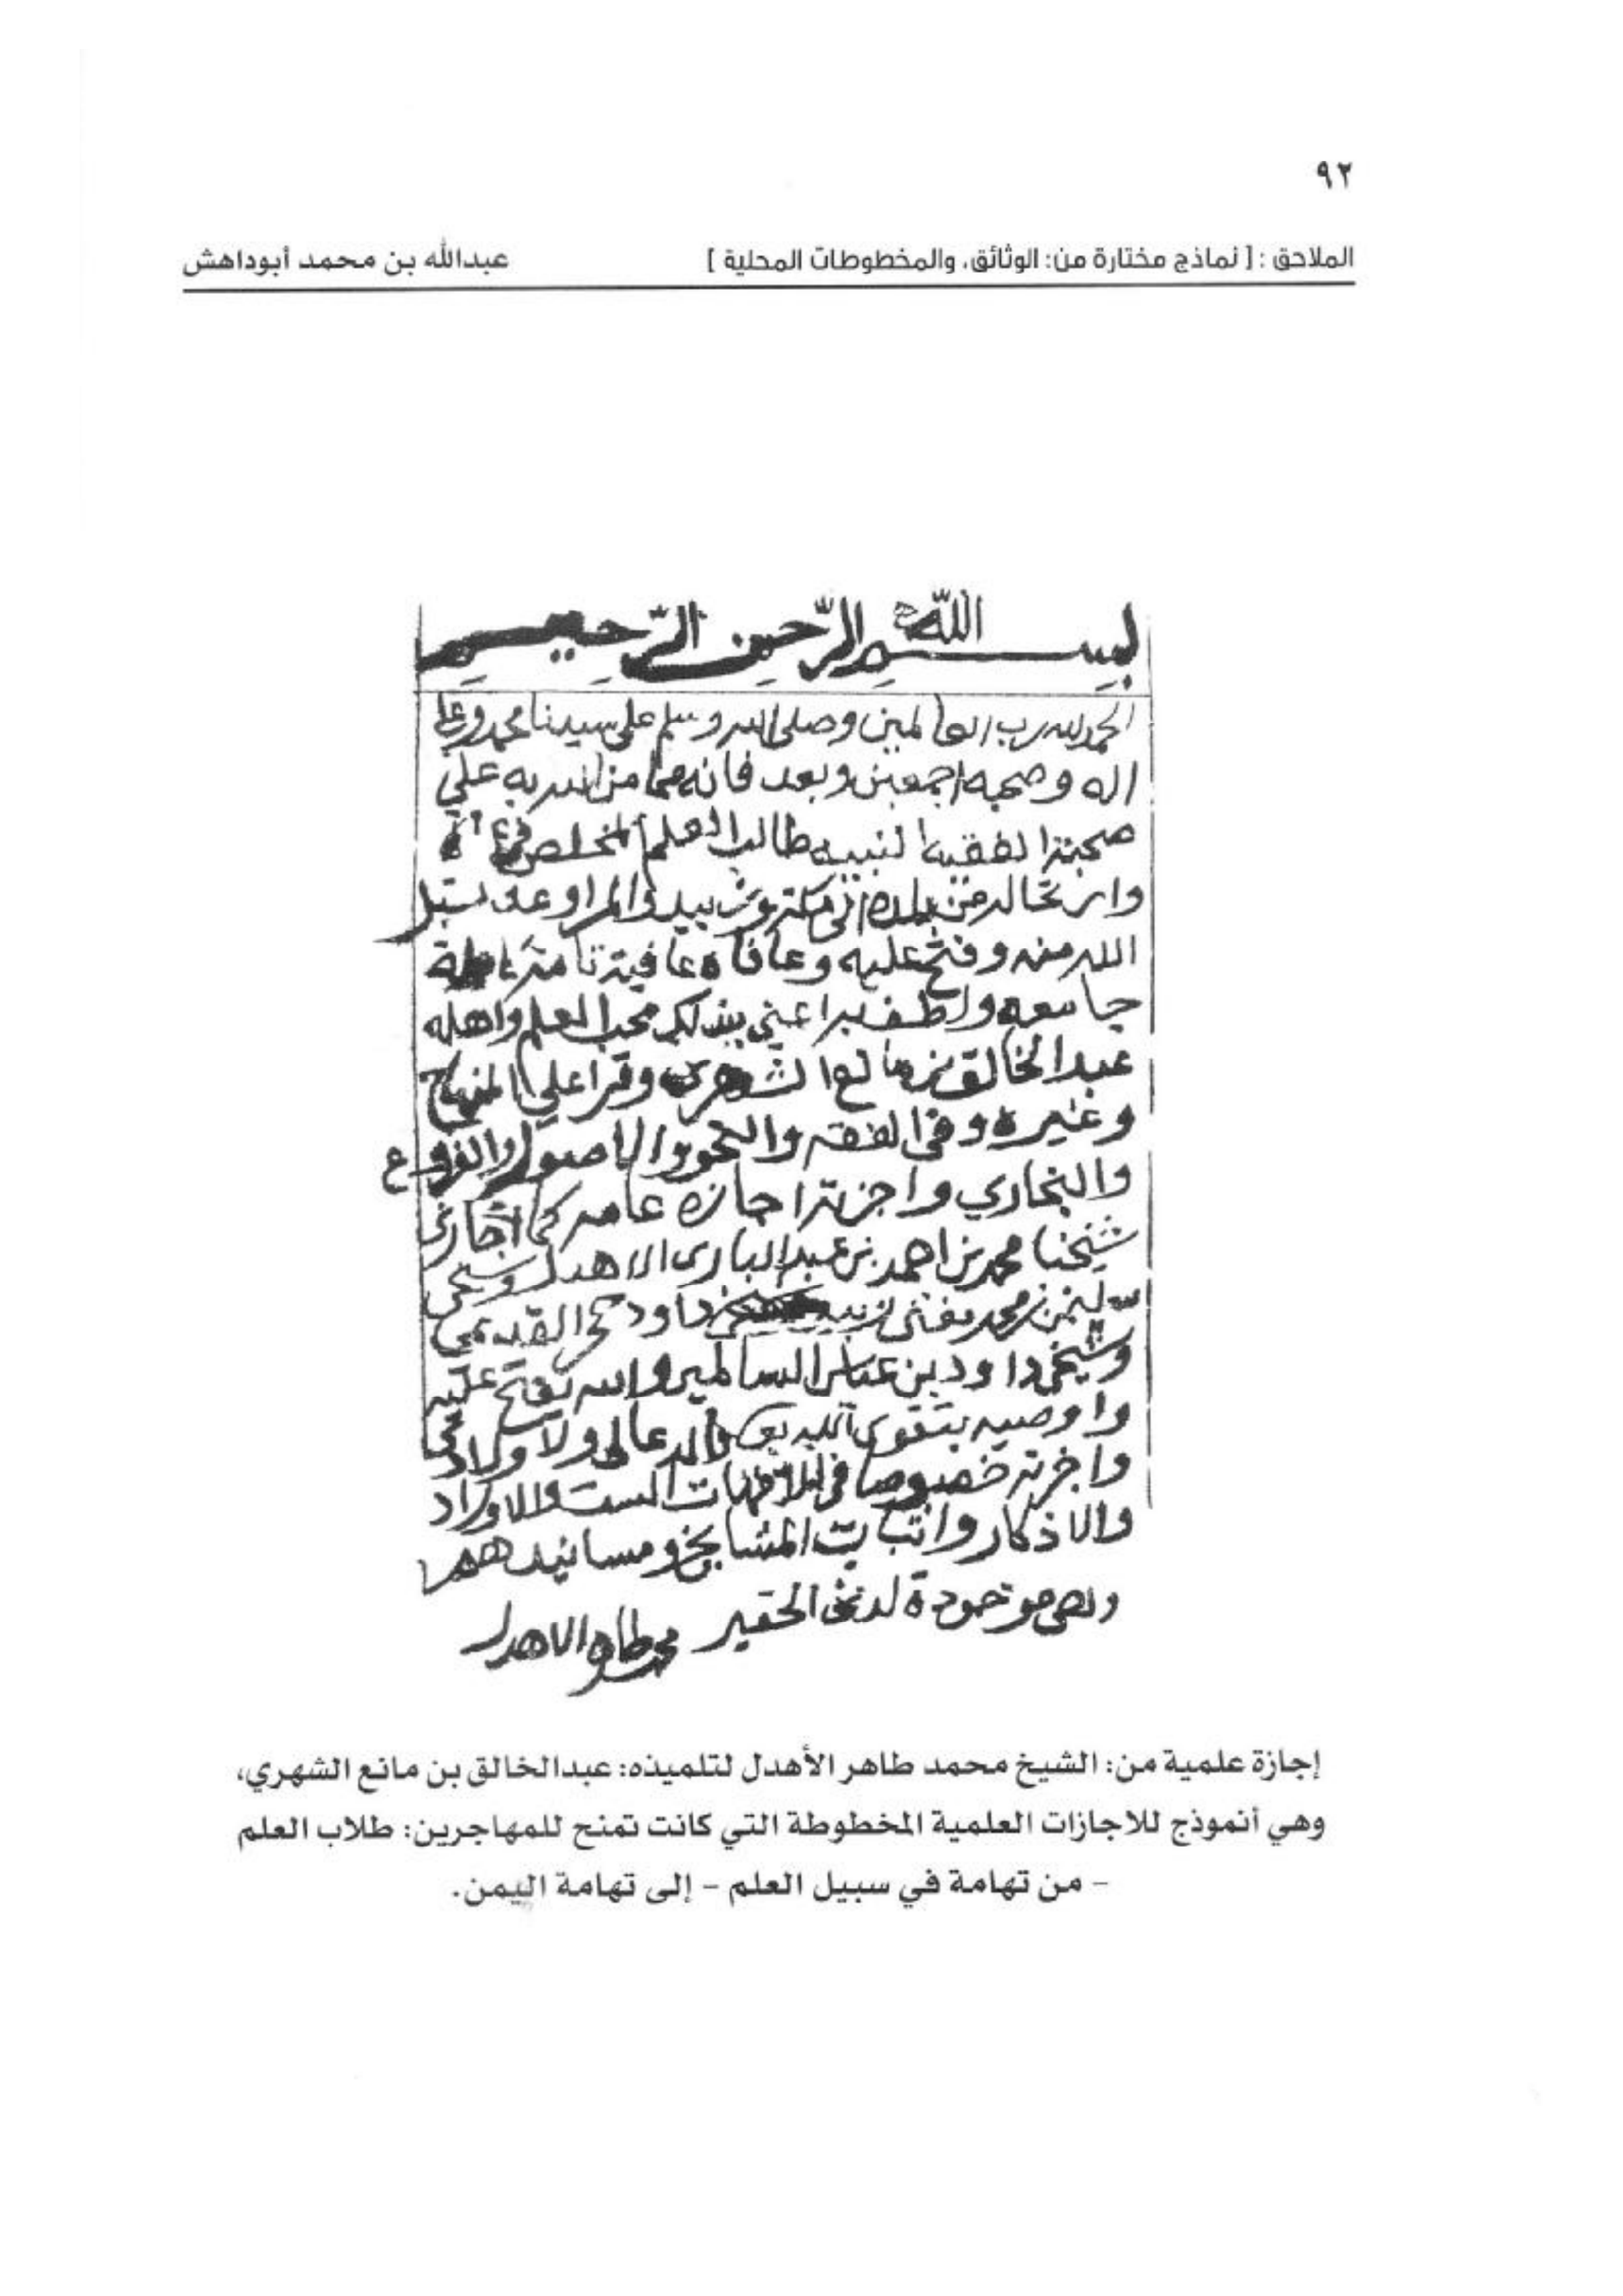 ٩٢
الملاحق : [ نماذج مختارة من: الوثائق، والمخطوطات المحلية ]
عبدالله بن محمد أبوداهش
بسم الله الرحمن الرحيم
الحمد لله رب العالمين وصلى الله وسلم على سيدنا محمد وعلى
اله وصحبه اجمعين وبعد فانه مما من الله به علي
صحبة الفقيه النبيه طالب العلم المخلص
وارتحاله من بلده الى مكة وزبيد والمراوعه تقبل
الله منه وفتح عليه وعافاه عافية تامة
جامعه ولطف به اعني بذلك محب العلم واهله
عبد الخالق بن مانع الشهري وقرا علي المنهاج
وغيره وفي الفقه والنحو والاصول والفروع
والبخاري واجزته اجازه عامه كما اجازني
شيخنا محمد بن احمد بن عبد الباري الاهدل وشيخي
سليمن بن محمد مفتي زبيد داود حجر القديمي
وشيخي داود بن عباس السالمي والله يفتح عليه
واوصيه بتقوى الله والدعا لي ولاولادي
واجزته خصوصا في الامهات الست والاوراد
والاذكار واثبات المشايخ ومسانيدهم
وهي موجودة لدى الحقير محمد طاهر الاهدل
إجازة علمية من: الشيخ محمد طاهر الأهدل لتلميذه: عبدالخالق بن مانع الشهري،
وهي أنموذج للاجازات العلمية المخطوطة التي كانت تمنح للمهاجرين: طلاب العلم
- من تهامة في سبيل العلم - إلى تهامة اليمن.